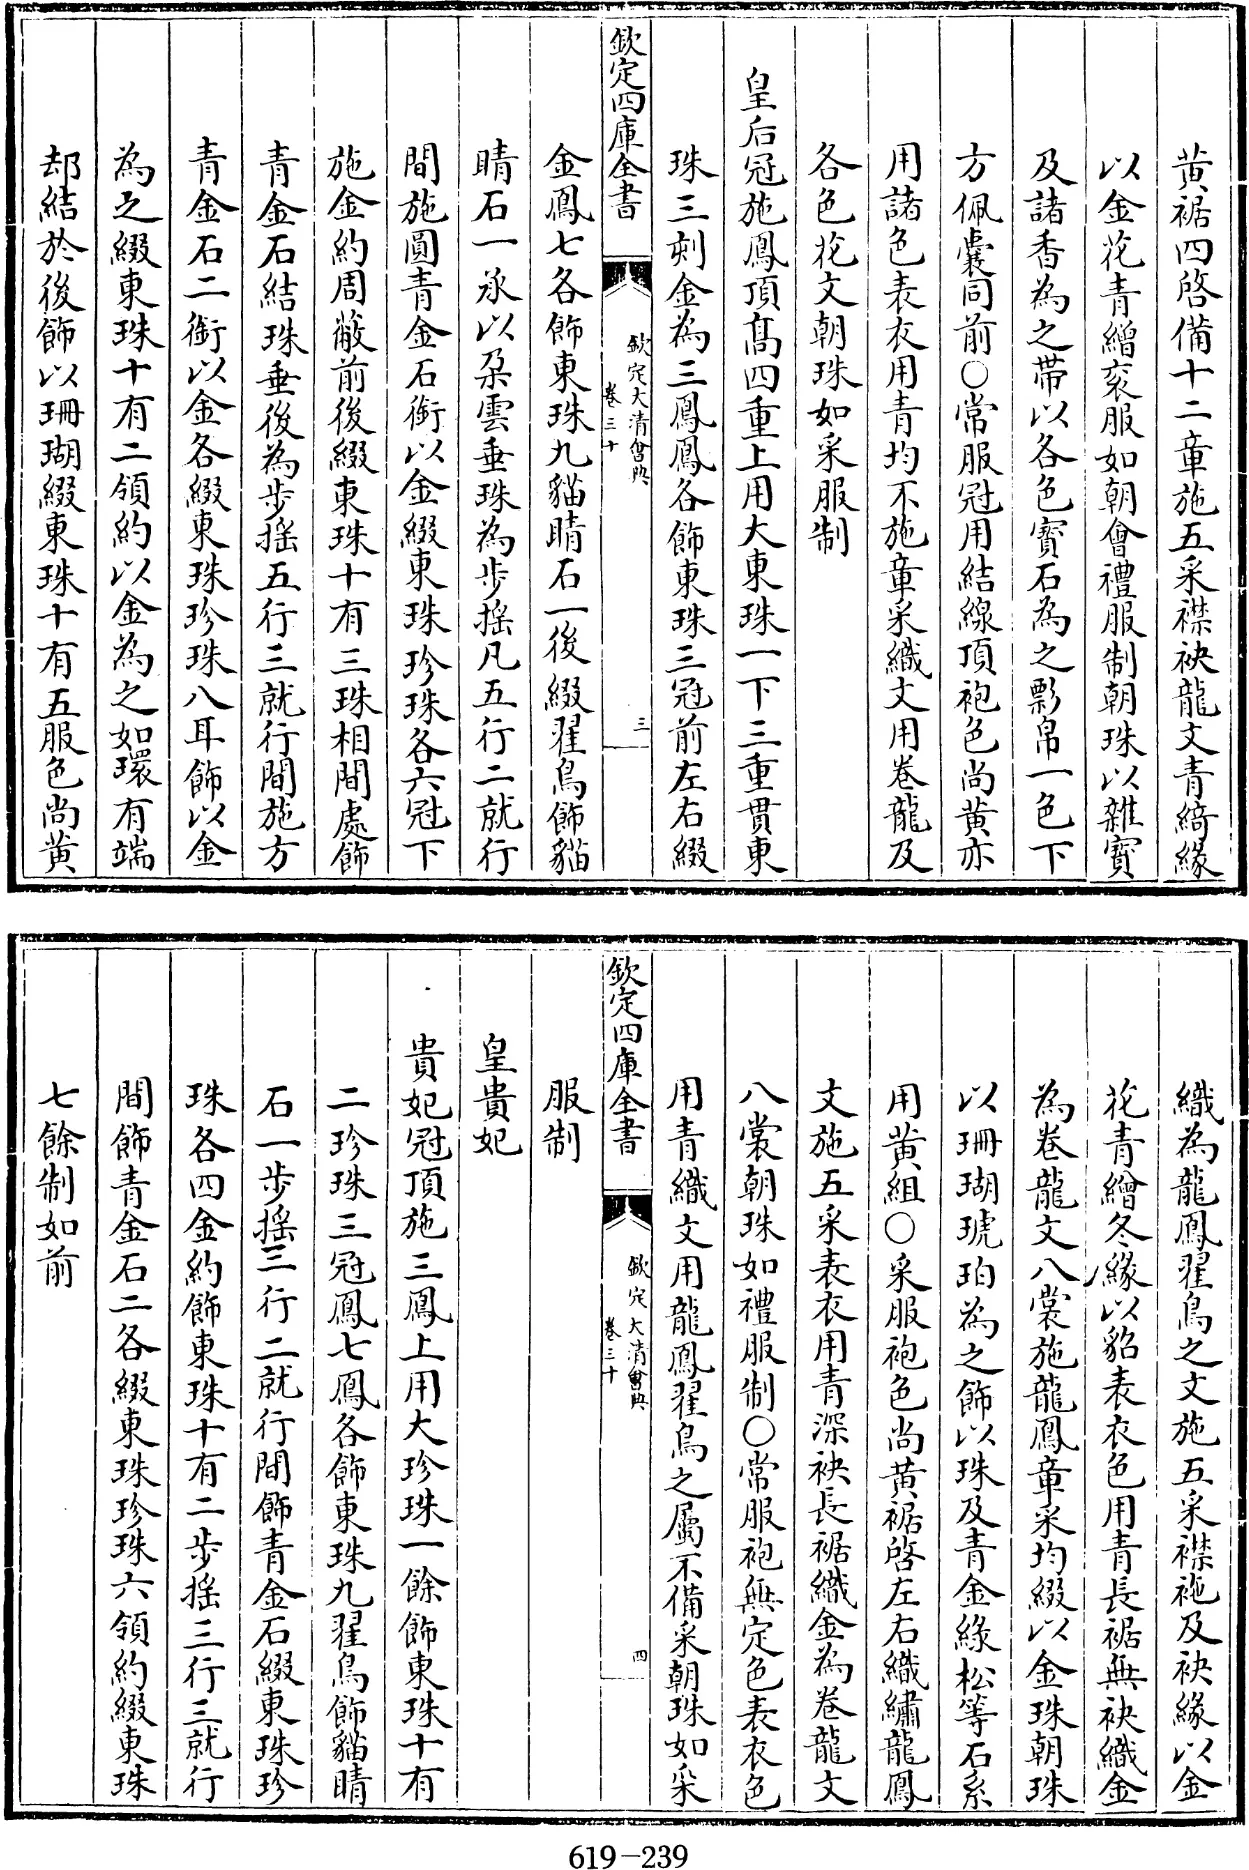 黄裾四啓備十二章施五采襟袂龍文青綺緣
以金花青繒衮服如朝會禮服制朝珠以雜寳
及諸香為之帶以各色寳石為之㡽帛一色下
方佩囊同前○常服冠用結線頂袍色尚黄亦
用諸色表衣用青均不施章采織文用卷龍及
各色花文朝珠如采服制
皇后冠施鳳頂髙四重上用大東珠一下三重貫東
珠三刻金為三鳳鳳各飾東珠三冠前左右綴
欽定四庫全書
欽定大清會典
卷三十
三
金鳳七各飾東珠九貓睛石一後綴翟鳥飾貓
睛石一承以朶雲垂珠為步揺凡五行二就行
間施圓青金石銜以金綴東珠珍珠各六冠下
施金約周蔽前後綴東珠十有三珠相間處飾
青金石結珠垂後為步揺五行三就行間施方
青金石二銜以金各綴東珠珍珠八耳飾以金
為之綴東珠十有二領約以金為之如環有端
却結於後飾以珊瑚綴東珠十有五服色尚黄
織為龍鳳翟鳥之文施五采襟袘及袂緣以金
花青繒冬緣以貂表衣色用青長裾無袂織金
為卷龍文八裳施龍鳳章采均綴以金珠朝珠
以珊瑚琥珀為之飾以珠及青金緣松等石系
用黄組○采服袍色尚黄裾啓左右織繡龍鳳
文施五采表衣用青深袂長裾織金為卷龍文
八裳朝珠如禮服制○常服袍無定色表衣色
用青織文用龍鳳翟鳥之屬不備采朝珠如采
欽定四庫全書
欽定大清會典
卷三十
四
服制
皇貴妃
貴妃冠頂施三鳳上用大珍珠一餘飾東珠十有
二珍珠三冠鳳七鳳各飾東珠九翟鳥飾貓睛
石一步揺三行二就行間飾青金石綴東珠珍
珠各四金約飾東珠十有二步揺三行三就行
間飾青金石二各綴東珠珍珠六領約綴東珠
七餘制如前
619-239